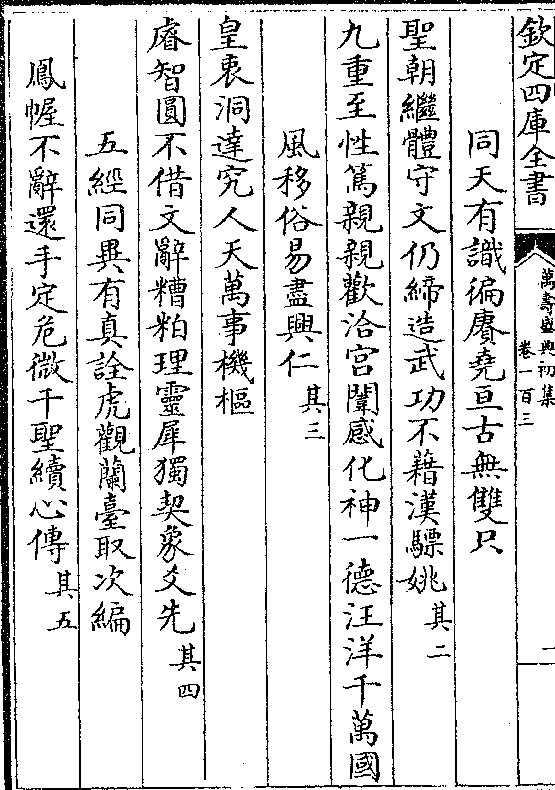 欽定四庫全書
萬壽盛典初集
卷一百三
同天有識徧賡堯亘古無雙只
聖朝繼體守文仍締造武功不藉漢驃姚其二
九重至性篤親親歡洽宫闈感化神一德汪洋千萬國
風移俗易盡興仁其三
皇衷洞達究人天萬事機樞
睿智圓不借文辭糟粕理靈犀獨契象爻先其四
五經同異有真詮虎觀蘭臺取次編
鳳幄不辭還手定危微千聖續心傳其五